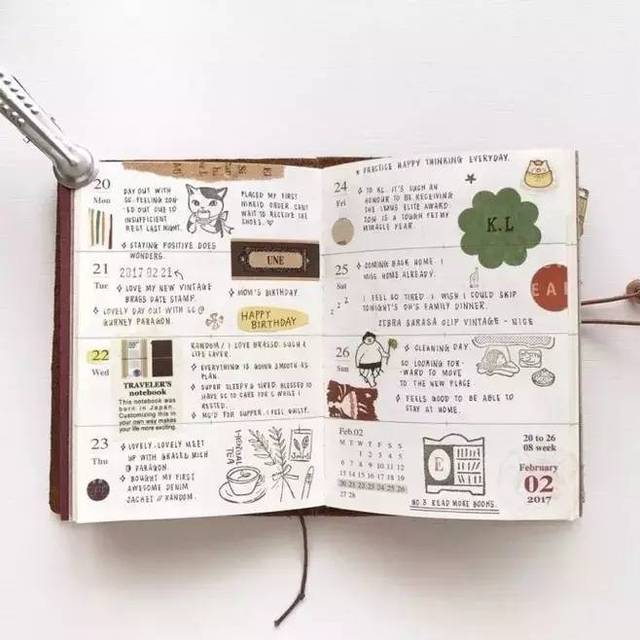 20
Mon
DAY OUT WITH
SC. FEELING ZON-
ED OUT DUE TO
INSUFFICIENT
REST LAST NIGHT.
PLACED MY FIRST
ORDER. CANT
WAIT TO RECEIVE THE
SHOES.
STAYING POSITIVE DOES
WONDERS.
UNE
21
Tue
2017 02 21
LOVE MY NEW VINTAGE
BRASS DATE STAMP.
LOVELY DAY OUT WITH SC @
GURNEY PARAGON.
MOM'S BIRTHDAY.
HAPPY
BIRTHDAY
22
Wed
TRAVELER'S
notebook
This notebook was
born in Japan.
Customizing this in
your own way makes
your life more exciting.
RANDOM / I LOVE BRASSO. SUCH A
LIFE SAVER.
EVERYTHING IS GOING SMOOTH AS
PLAN.
SUPER SLEEPY & TIRED. BLESSED TO
HAVE SC TO CARE FOR C WHILE I
RESTED.
MC'D FOR SUPPER. I FEEL GUILTY.
23
Thu
LOVELY, LOVELY MEET
UP WITH GRACE MUCH
@ PARAGON.
BOUGHT MY FIRST
AWESOME DENIM
JACKET // RANDOM.
TEA
* PRACTICE HAPPY THINKING EVERYDAY.
24
Fri
TO KL. IT'S SUCH AN
HONOUR TO BE RECEIVING
THE ELITE AWARD.
MIRACLE YEAR.
K.L
25
Sat
z z z
COMING BACK HOME. I
MISS HOME ALREADY.
I FEEL SO TIRED. I WISH I COULD SKIP
TONIGHT'S FAMILY DINNER.
ZEBRA SARASA CLIP VINTAGE - NICE
EA
26
Sun
CLEANING DAY.
SO LOOKING FOR-
WARD TO MOVE
TO THE NEW PLACE.
FEELS GOOD TO BE ABLE TO
STAY AT HOME.
Feb.02
M T W T F S S
1 2 3 4 5
6 7 8 9 10 11 12
13 14 15 16 17 18 19
20 21 22 23 24 25 26
27 28
E
NO.3 READ MORE BOOKS.
20 to 26
08 week
February
02
2017